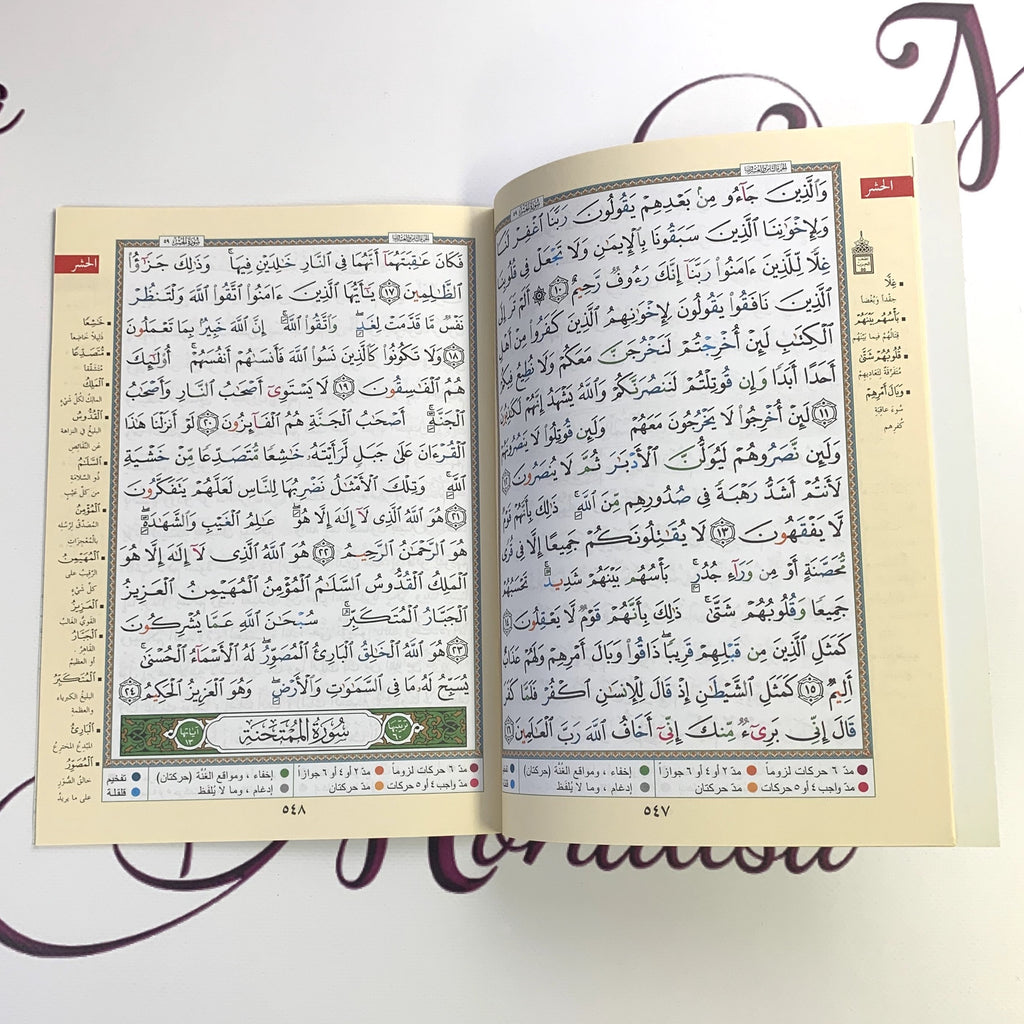 الحشر
وَٱلَّذِينَ جَآءُو مِنۢ بَعْدِهِمْ يَقُولُونَ رَبَّنَا ٱغْفِرْ لَنَا
وَلِإِخْوَٰنِنَا ٱلَّذِينَ سَبَقُونَا بِٱلْإِيمَٰنِ وَلَا تَجْعَلْ فِى قُلُوبِنَا
غِلًّا لِّلَّذِينَ ءَامَنُوا۟ رَبَّنَآ إِنَّكَ رَءُوفٌ رَّحِيمٌ ١٠ ۞ أَلَمْ تَرَ إِلَى
ٱلَّذِينَ نَافَقُوا۟ يَقُولُونَ لِإِخْوَٰنِهِمُ ٱلَّذِينَ كَفَرُوا۟ مِنْ أَهْلِ
ٱلْكِتَٰبِ لَئِنْ أُخْرِجْتُمْ لَنَخْرُجَنَّ مَعَكُمْ وَلَا نُطِيعُ فِيكُمْ
أَحَدًا أَبَدًا وَإِن قُوتِلْتُمْ لَنَنصُرَنَّكُمْ وَٱللَّهُ يَشْهَدُ إِنَّهُمْ لَكَٰذِبُونَ
١١ لَئِنْ أُخْرِجُوا۟ لَا يَخْرُجُونَ مَعَهُمْ وَلَئِن قُوتِلُوا۟ لَا يَنصُرُونَهُمْ
وَلَئِن نَّصَرُوهُمْ لَيُوَلُّنَّ ٱلْأَدْبَٰرَ ثُمَّ لَا يُنصَرُونَ ١٢
لَأَنتُمْ أَشَدُّ رَهْبَةً فِى صُدُورِهِم مِّنَ ٱللَّهِ ۚ ذَٰلِكَ بِأَنَّهُمْ قَوْمٌ
لَّا يَفْقَهُونَ ١٣ لَا يُقَٰتِلُونَكُمْ جَمِيعًا إِلَّا فِى قُرًى
مُّحَصَّنَةٍ أَوْ مِن وَرَآءِ جُدُرٍۭ ۚ بَأْسُهُم بَيْنَهُمْ شَدِيدٌ ۚ تَحْسَبُهُمْ
جَمِيعًا وَقُلُوبُهُمْ شَتَّىٰ ۚ ذَٰلِكَ بِأَنَّهُمْ قَوْمٌ لَّا يَعْقِلُونَ ١٤
كَمَثَلِ ٱلَّذِينَ مِن قَبْلِهِمْ قَرِيبًا ۖ ذَاقُوا۟ وَبَالَ أَمْرِهِمْ وَلَهُمْ عَذَابٌ
أَلِيمٌ ١٥ كَمَثَلِ ٱلشَّيْطَٰنِ إِذْ قَالَ لِلْإِنسَٰنِ ٱكْفُرْ فَلَمَّا كَفَرَ
قَالَ إِنِّى بَرِىٓءٌ مِّنكَ إِنِّىٓ أَخَافُ ٱللَّهَ رَبَّ ٱلْعَٰلَمِينَ ١٦
غِلًّا
حِقْدًا وَبُغْضًا
بَأْسُهُم بَيْنَهُمْ
قِتَالُهُمْ فِيمَا بَيْنَهُمْ
قُلُوبُهُمْ شَتَّىٰ
مُتَفَرِّقَةٌ لِتَعَادِيهِمْ
وَبَالَ أَمْرِهِمْ
سُوءَ عاقِبَةِ
كُفرِهِم
مدّ ٦ حركات لزوماً مدّ ٢ أو ٤ أو ٦ جوازاً إخفاء ، ومواقع الغُنَّة (حركتان)
مدّ واجب ٤ أو ٥ حركات مدّ حركتان إدغام ، وما لا يُلفَظ
٥٤٧
الحشر
فَكَانَ عَٰقِبَتَهُمَآ أَنَّهُمَا فِى ٱلنَّارِ خَٰلِدَيْنِ فِيهَا ۚ وَذَٰلِكَ جَزَٰٓؤُا۟
ٱلظَّٰلِمِينَ ١٧ يَٰٓأَيُّهَا ٱلَّذِينَ ءَامَنُوا۟ ٱتَّقُوا۟ ٱللَّهَ وَلْتَنظُرْ
نَفْسٌ مَّا قَدَّمَتْ لِغَدٍ ۖ وَٱتَّقُوا۟ ٱللَّهَ ۚ إِنَّ ٱللَّهَ خَبِيرٌۢ بِمَا تَعْمَلُونَ
١٨ وَلَا تَكُونُوا۟ كَٱلَّذِينَ نَسُوا۟ ٱللَّهَ فَأَنسَىٰهُمْ أَنفُسَهُمْ ۚ أُو۟لَٰٓئِكَ
هُمُ ٱلْفَٰسِقُونَ ١٩ لَا يَسْتَوِىٓ أَصْحَٰبُ ٱلنَّارِ وَأَصْحَٰبُ
ٱلْجَنَّةِ ۚ أَصْحَٰبُ ٱلْجَنَّةِ هُمُ ٱلْفَآئِزُونَ ٢٠ لَوْ أَنزَلْنَا هَٰذَا
ٱلْقُرْءَانَ عَلَىٰ جَبَلٍ لَّرَأَيْتَهُۥ خَٰشِعًا مُّتَصَدِّعًا مِّنْ خَشْيَةِ
ٱللَّهِ ۚ وَتِلْكَ ٱلْأَمْثَٰلُ نَضْرِبُهَا لِلنَّاسِ لَعَلَّهُمْ يَتَفَكَّرُونَ
٢١ هُوَ ٱللَّهُ ٱلَّذِى لَآ إِلَٰهَ إِلَّا هُوَ ۖ عَٰلِمُ ٱلْغَيْبِ وَٱلشَّهَٰدَةِ ۖ
هُوَ ٱلرَّحْمَٰنُ ٱلرَّحِيمُ ٢٢ هُوَ ٱللَّهُ ٱلَّذِى لَآ إِلَٰهَ إِلَّا هُوَ
ٱلْمَلِكُ ٱلْقُدُّوسُ ٱلسَّلَٰمُ ٱلْمُؤْمِنُ ٱلْمُهَيْمِنُ ٱلْعَزِيزُ
ٱلْجَبَّارُ ٱلْمُتَكَبِّرُ ۚ سُبْحَٰنَ ٱللَّهِ عَمَّا يُشْرِكُونَ
٢٣ هُوَ ٱللَّهُ ٱلْخَٰلِقُ ٱلْبَارِئُ ٱلْمُصَوِّرُ ۖ لَهُ ٱلْأَسْمَآءُ ٱلْحُسْنَىٰ ۚ
يُسَبِّحُ لَهُۥ مَا فِى ٱلسَّمَٰوَٰتِ وَٱلْأَرْضِ ۖ وَهُوَ ٱلْعَزِيزُ ٱلْحَكِيمُ ٢٤
ترتيبها ٦٠ سُورَةُ المُمْتَحنَة آياتها ١٣
خَٰشِعًا
ذَلِيلًا خَاضِعاً
مُّتَصَدِّعًا
مُتَشَقِّقاً
ٱلْمَلِكُ
المالِكُ لِكُلِّ شيءٍ
ٱلْقُدُّوسُ
البليغُ في النزاهة
عن النَّقائصِ
ٱلسَّلَٰمُ
ذُو السَّلامَةِ
من كلِّ عَيْبٍ
ٱلْمُؤْمِنُ
المُصَدِّقُ لِرُسُلِهِ
بالمُعْجِزاتِ
ٱلْمُهَيْمِنُ
الرَّقِيبُ على
كلِّ شيءٍ
ٱلْعَزِيزُ
القَوِيُّ الغالِبُ
ٱلْجَبَّارُ
القاهِرُ
أو العظيمُ
ٱلْمُتَكَبِّرُ
البليغُ الكبرياء
والعظمةِ
ٱلْبَارِئُ
المُبْدِعُ المخترعُ
ٱلْمُصَوِّرُ
خالِقُ الصُّوَرِ
على ما يريدُ
مدّ ٦ حركات لزوماً مدّ ٢ أو ٤ أو ٦ جوازاً إخفاء ، ومواقع الغُنَّة (حركتان) تفخيم
مدّ واجب ٤ أو ٥ حركات مدّ حركتان إدغام ، وما لا يُلفَظ قلقلة
٥٤٨